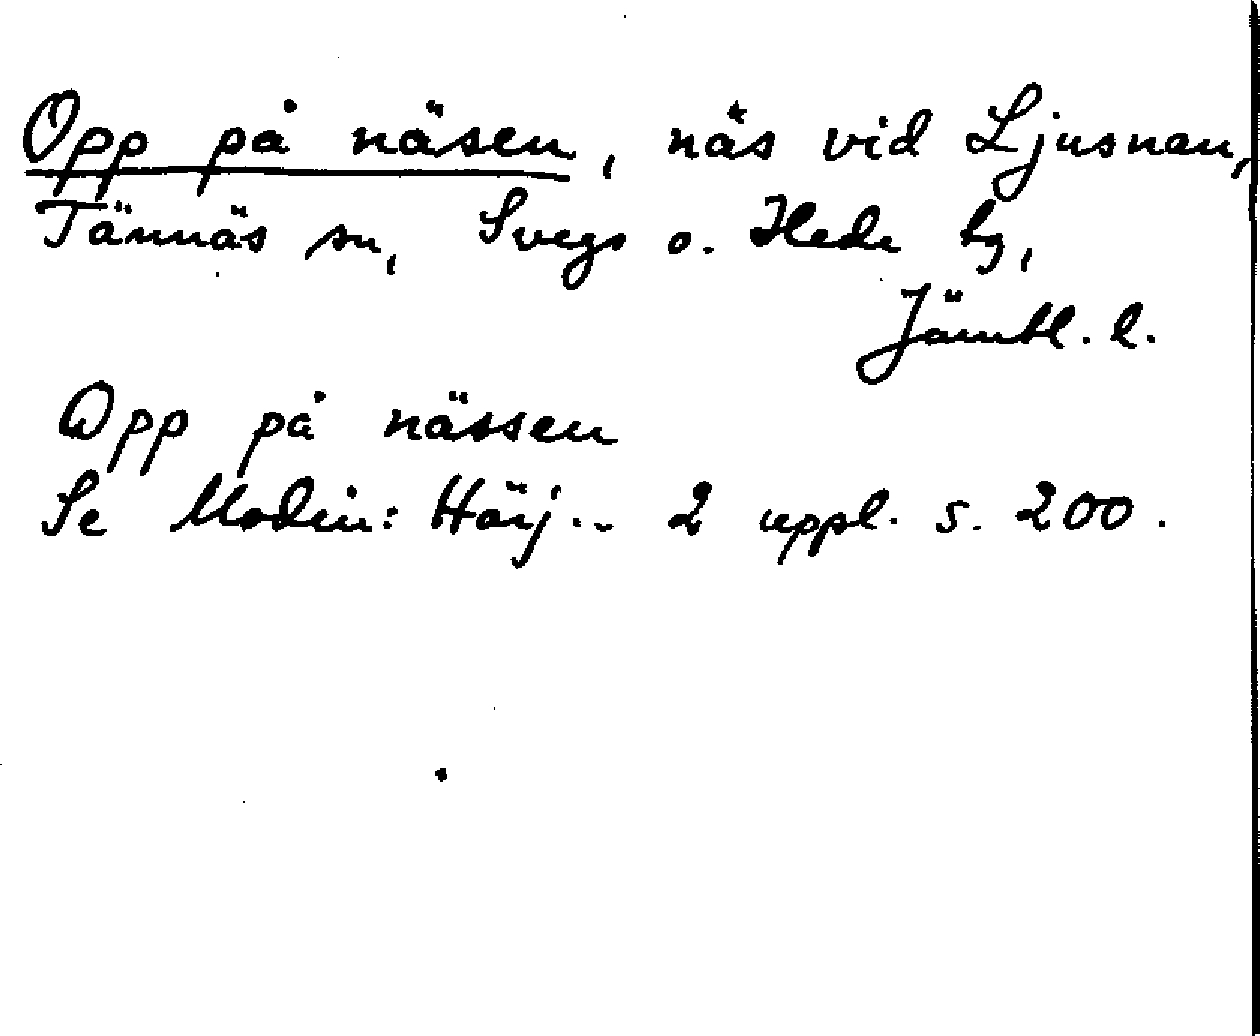 Opp på näsen, näs vid Ljusnan,
Tännäs sn, Svegs o. Hede tg,
Jämtl. l.
Opp på nässen
Se Modin: Härj... 2 uppl. s. 200.